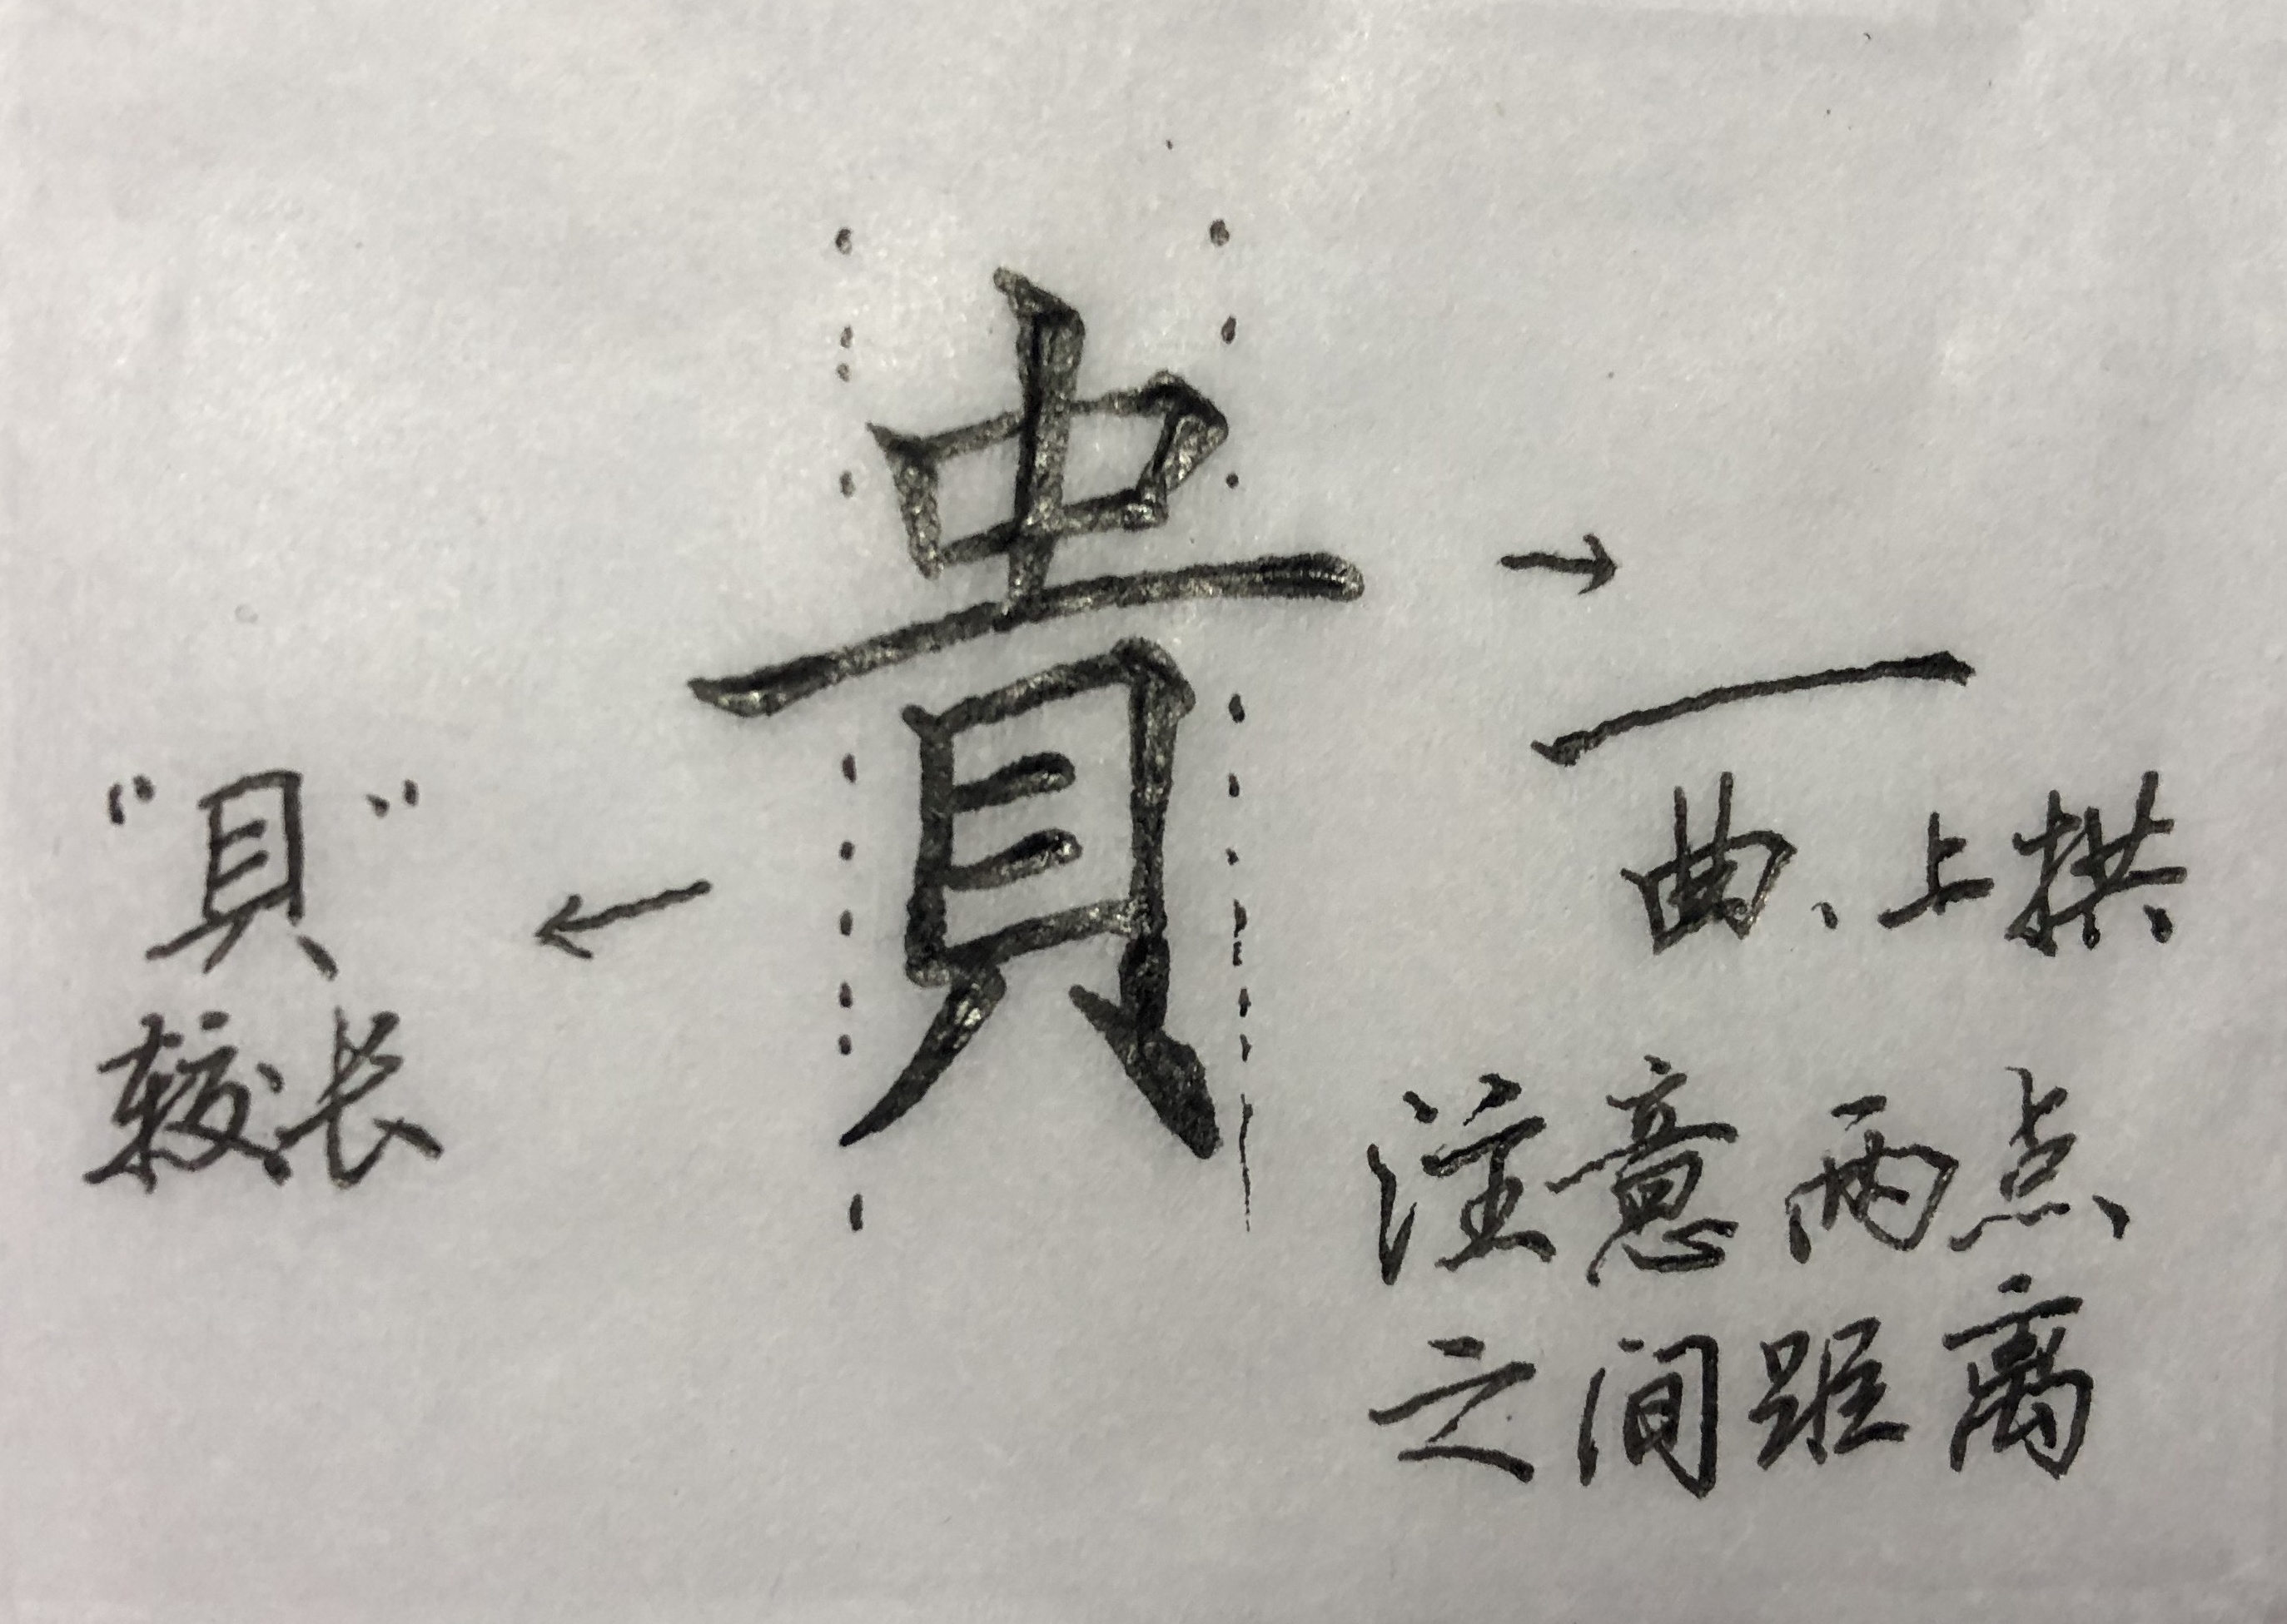 貴
一
曲、上拱
"貝"
较长
注意两点
之间距离